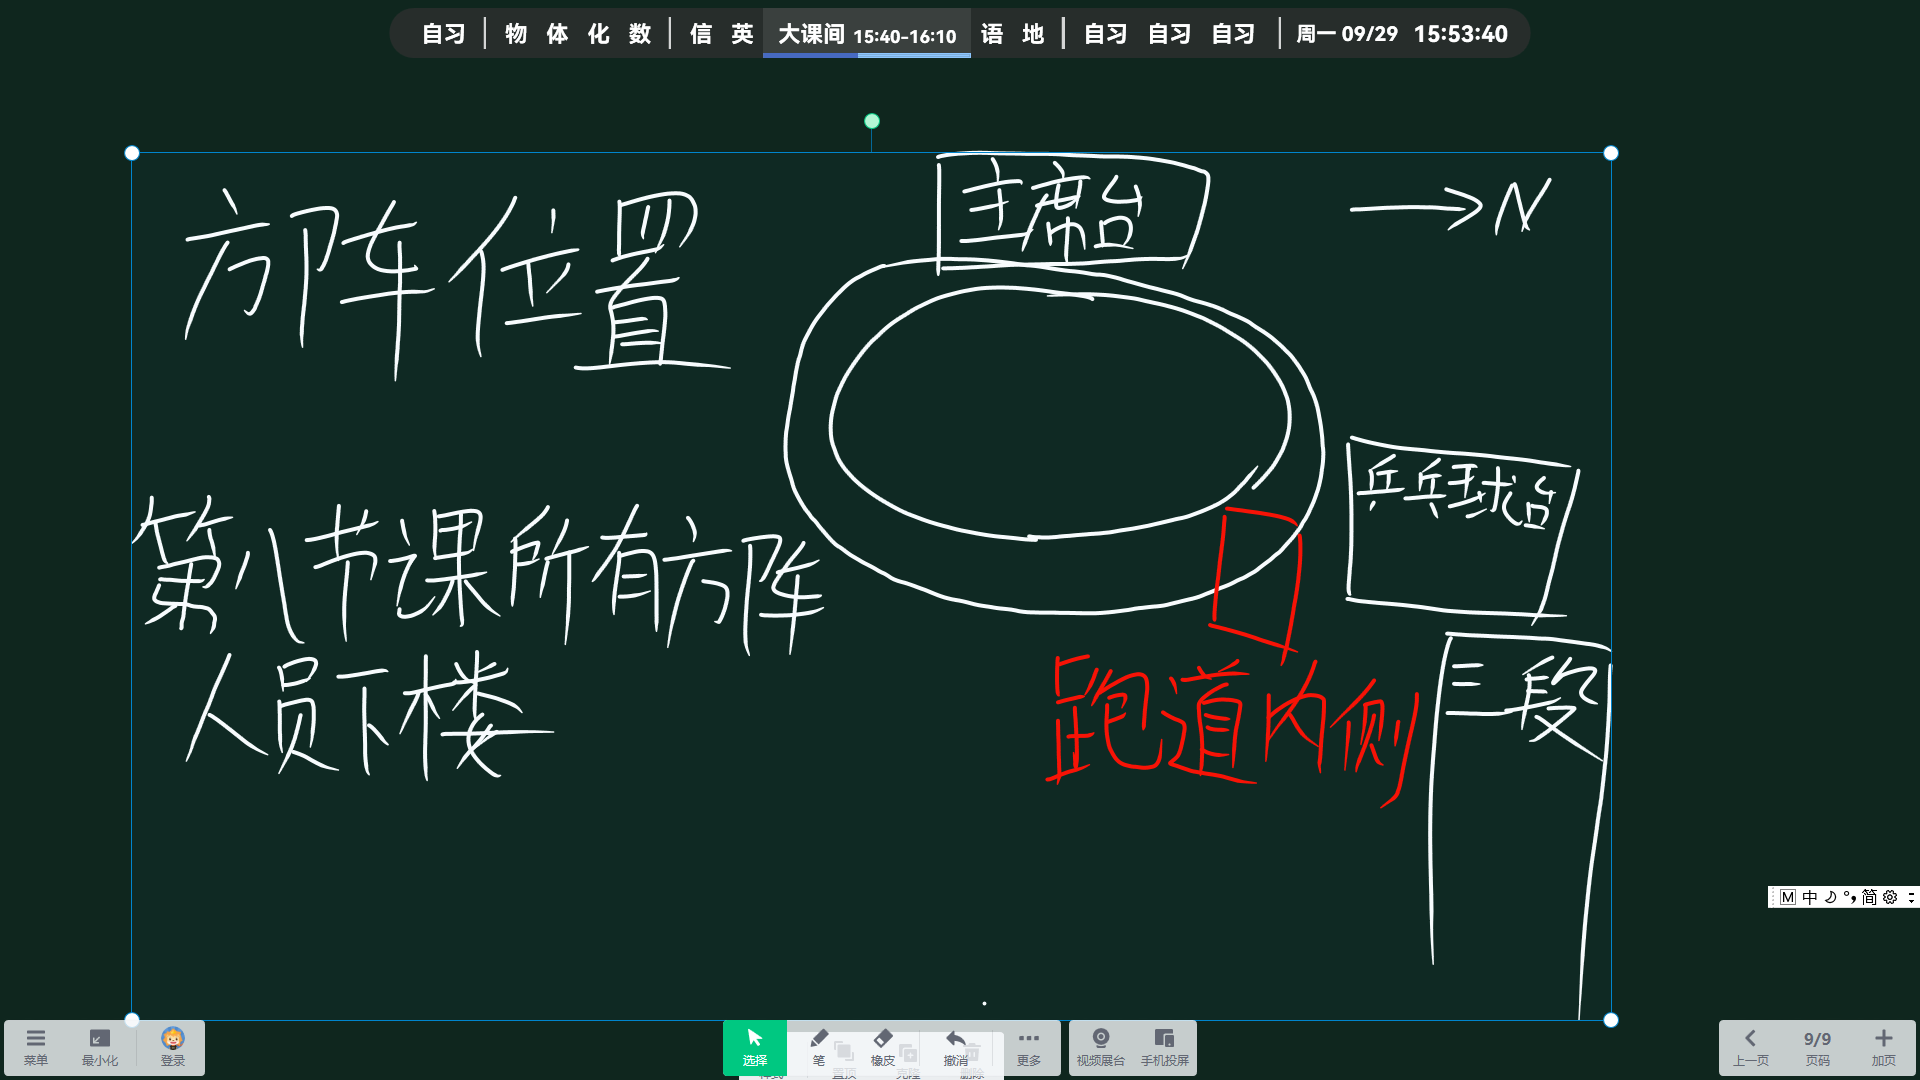 自习 | 物 体 化 数 | 信 英 大课间 15:40-16:10 语 地 | 自习 自习 自习 | 周一 09/29 15:53:40
主席台
→N
方阵位置
乒乓球台
第八节课所有方阵
人员下楼
三段
跑道内侧
M 中 简
菜单 最小化 登录 选择 笔 橡皮 撤消 更多 视频展台 手机投屏 上一页 9/9 页码 加页
置顶 克隆 删除